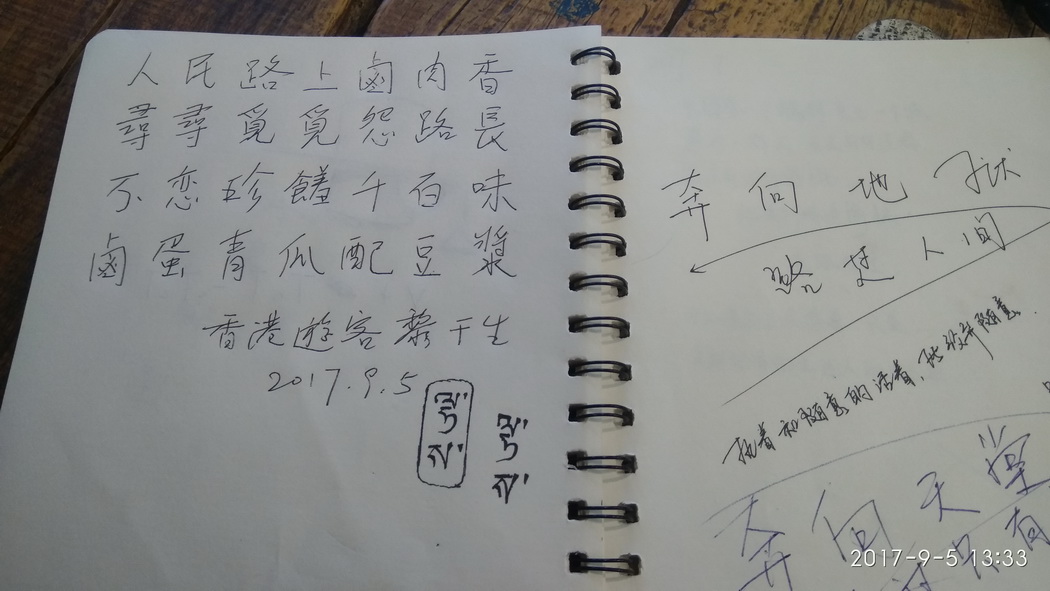 人民路上鹵肉香
尋尋覓覓怨路長
不恋珍饈千百味
鹵蛋青瓜配豆漿
香港遊客黎干生
2017.9.5
奔向地狱
路过人间
执着和随意的活着,
奔向天堂
只有
2017-9-5 13:33